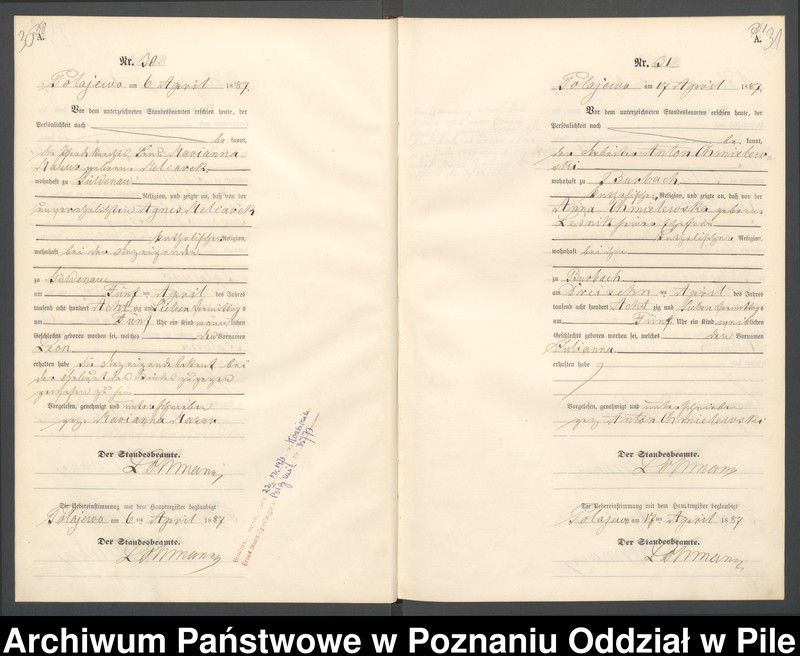 30
A.
Nr. 30.
Polajewo am 6 April 1887.
Vor dem unterzeichneten Standesbeamten erschien heute, der
Persönlichkeit nach
be kannt,
die Marianna
Mazur geborene
wohnhaft zu Güldenau
Religion, und zeigte an, daß von der
unverehelichten Agnes
katholischer Religion,
wohnhaft bei der Anzeigende
zu Güldenau
am fünf ten April des Jahres
tausend acht hundert Acht zig und Sieben Vormittags
um Fünf Uhr ein Kind männlichen
Geschlechts geboren worden sei, welches den Vornamen
Leon
erhalten habe die Anzeigende bekennt bei
der Geburt des Kindes zugegen
gewesen zu sein
Vorgelesen, genehmigt und unterschrieben
gez. Marianna Mazur
Der Standesbeamte.
Lohmann
Die Uebereinstimmung mit dem Hauptregister beglaubigt
Polajewo am 6 ten April 1887
Der Standesbeamte.
Lohmann
31
A.
31
Nr. 31
Polajewo am 17 April 1887.
Vor dem unterzeichneten Standesbeamten erschien heute, der
Persönlichkeit nach
be kannt,
der Arbeiter Anton Chmielew-
ski
wohnhaft zu Burbach
katholischer Religion, und zeigte an, daß von der
Anna Chmielewska geborene
Lesnik seiner Ehefrau
katholischer Religion,
wohnhaft bei ihm
zu Burbach
am Dreizehn ten April des Jahres
tausend acht hundert Acht zig und Sieben Vormittags
um Fünf Uhr ein Kind weiblichen
Geschlechts geboren worden sei, welches den Vornamen
Julianna
erhalten habe
Vorgelesen, genehmigt und unterschrieben
gez. Anton Chmielewski
Der Standesbeamte.
Lohmann
Die Uebereinstimmung mit dem Hauptregister beglaubigt
Polajewo am 17 ten April 1887
Der Standesbeamte.
Lohmann
Archiwum Państwowe w Poznaniu Oddział w Pile